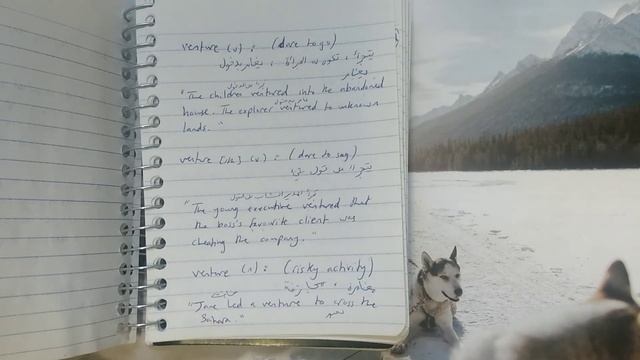 venture (v) : (dare to go)
يتجرأ ، تكون له الجرأة ، يغامر بدخول
يغامر
"The children ventured into the abandoned
house. The explorer ventured to unknown
lands."
venture (v) : (dare to say)
يتجرأ على قول
"The young executive ventured that
the boss's favourite client was
cheating the company."
venture (n) : (risky activity)
مغامرة ،
"Jane led a venture to cross the
Sahara."